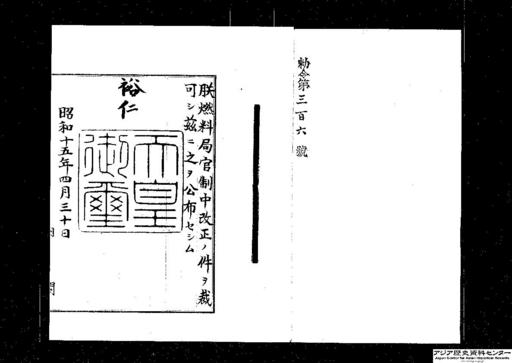 勅令第三百六號
朕燃料局官制中改正ノ件ヲ裁
可シ茲ニ之ヲ公布セシム
裕仁
天皇
御璽
昭和十五年四月三十日
内閣
アジア歴史資料センター
Japan Center for Asian Historical Records